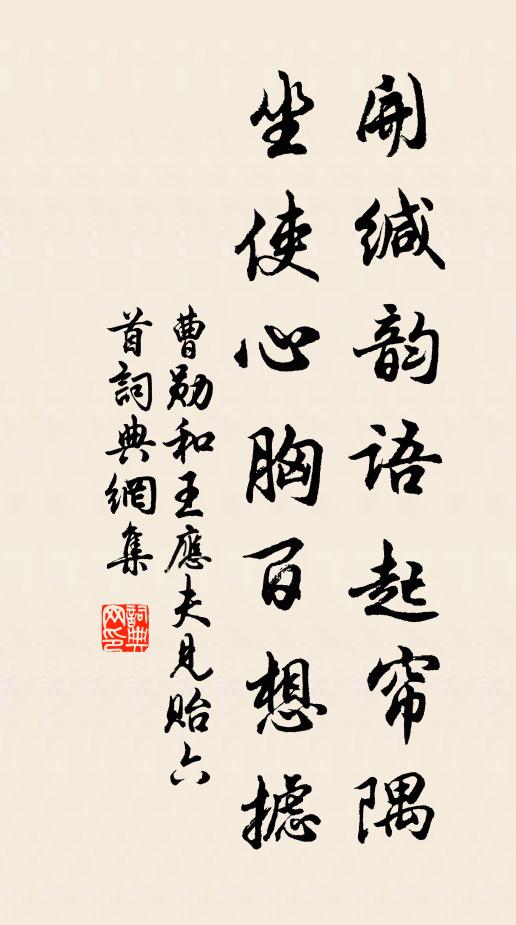 開缄韵语起帘隅
坐使心胸百想摅
曹勋和王應夫見貽六
首詞典網集
詞典网印